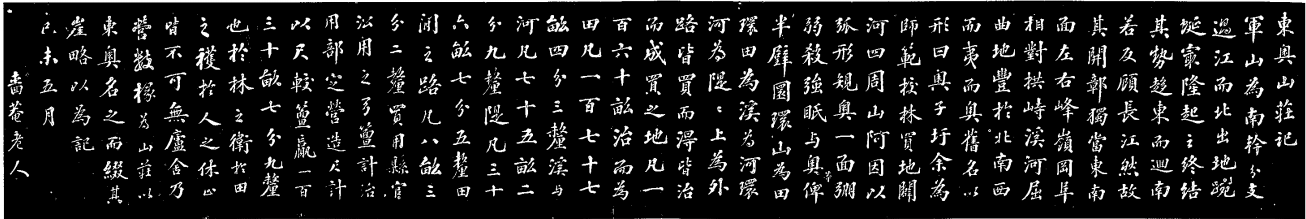 東奧山莊記
軍山為南幹分支
過江而北出地蜿
蜒靈隆起之終結
其勢趨東而迴南
若反顧長江然故
其開鄣獨當東南
而左右峰嶺岡阜
相對拱峙溪河屈
曲地豐於北南西
而夷而奧舊名以
形曰奧子圩余為
師範校林買地闢
河四周山阿因以
弧形規奧一面弸
弱殺強眂与奧俾
半璧圜環山為田
環田為溪為河環
河為隄隄上為外
路皆買而得皆治
而成買之地凡一
百六十畝治而為
田凡一百七十七
畝四分三釐溪与
河凡七十五畝二
分九釐隄凡三十
六畝七分五釐田
間之路凡八畝三
分二釐買用縣官
沿用之弓簠計治
用部定營造尺計
以尺較簠贏一百
三十畝七分九釐
也於林之衛於田
之穫於人之休止
皆不可無廬舍乃
營數椽為山莊以
東奧名之而綴其
崖略以為記
己未五月
嗇菴老人